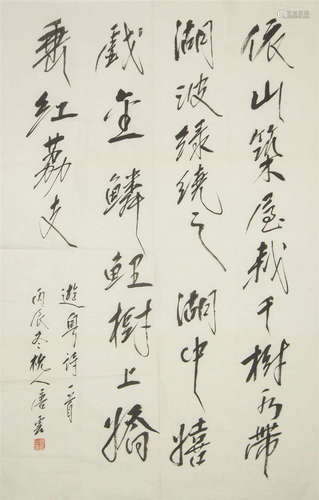 依山築屋栽千樹水帶
湖波綠繞之湖中嬉
戲金鱗鯉樹上嬌
垂紅荔支
遊粵詩一首
丙辰冬杭人唐雲